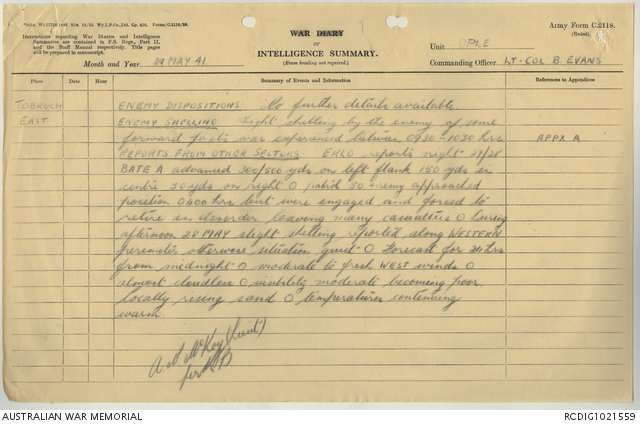 Army Form C.2118.
WAR DIARY
or
INTELLIGENCE SUMMARY.
(Erase heading not required).
Instructions regarding War Diaries and Intelligence
Summaries are contained in F.S. Regs., Part II.
and the Staff Manual respectively. Title pages
will be prepared in manuscript.
Month and Year 29 MAY 41
Unit
Commanding Officer LT-COL B EVANS
Place
Summary of Events and Information
References to Appendices
TOBRUCH
EAST
ENEMY DISPOSITIONS No further details available
ENEMY SHELLING Light shelling by the enemy of some
forward posts was experienced between 0930-1030 hrs
APPX A
REPORTS FROM OTHER SECTORS reports night 27/28
advanced 300/500 yds on left flank 150 yds in
centre 50 yds on right O 50 enemy approached
position 0400 hrs but were engaged and forced to
retire in disorder leaving many casualties O During
afternoon 28 MAY slight shelling reported along WESTERN
perimeter otherwise situation quiet O Forecast for 24 hrs
from midnight O moderate to fresh WEST winds O
almost cloudless O visibility moderate becoming poor
locally rising sand O temperatures continuing
warm.
AUSTRALIAN WAR MEMORIAL
RCDIG1021559